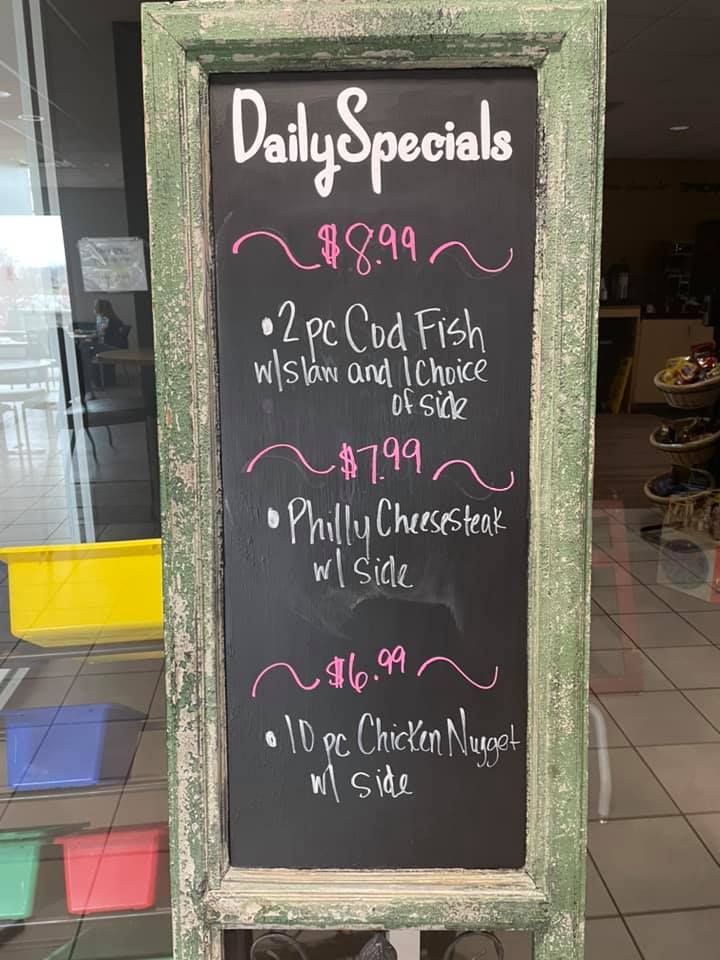 Daily Specials
$8.99
• 2 pc Cod Fish
w/slaw and 1 Choice
of side
$7.99
• Philly Cheesesteak
w/ side
$6.99
• 10 pc Chicken Nugget
w/ side